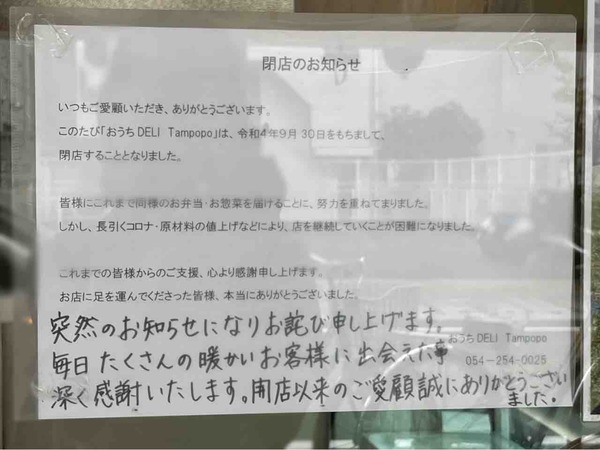 閉店のお知らせ
いつもご愛顧いただき、ありがとうございます。
このたび「おうちDELI Tampopo」は、令和4年9月30日をもちまして、
閉店することとなりました。
皆様にこれまで同様のお弁当・お惣菜を届けることに、努力を重ねてまりました。
しかし、長引くコロナ・原材料の値上げなどにより、店を継続していくことが困難になりました。
これまでの皆様からのご支援、心より感謝申し上げます。
お店に足を運んでくださった皆様、本当にありがとうございました。
突然のお知らせになりお詫び申し上げます。
おうちDELI Tampopo
毎日たくさんの暖かいお客様に出会えた事
054-254-0025
深く感謝いたします。開店以来のご愛顧誠にありがとうござい
ました。